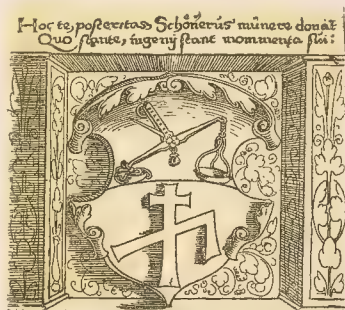 Hoc te, posteritas, Schönerus munere donat
Quo stante, ingenij stant monumenta sui: